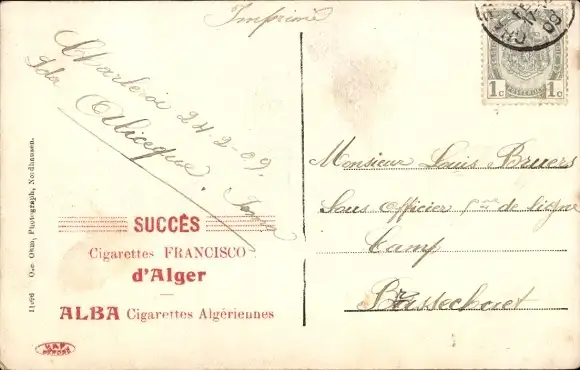 Imprimé
Charleroi 24-2-09.
SUCCÈS
Cigarettes FRANCISCO
d'Alger
ALBA Cigarettes Algériennes
11696 Osc. Ohm, Photograph, Nordhausen.
09
1c 1c
Monsieur Louis Bruers
Sous Officier de ligne
Camp